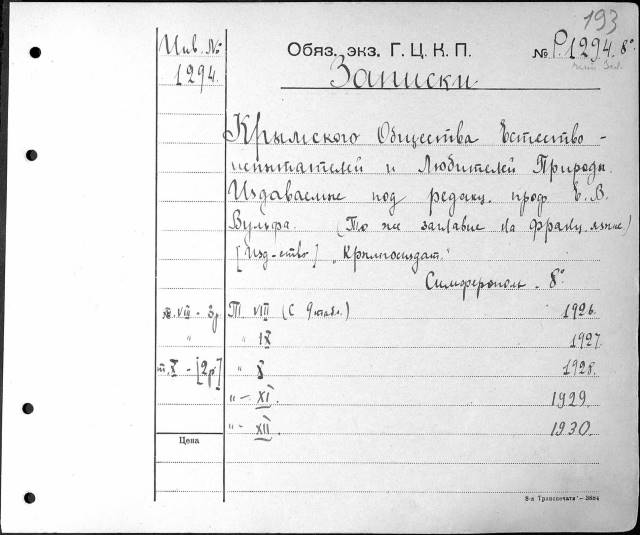 193
Инв. №
1294.
Обяз. экз. Г. Ц. К. П.
№ Р.1294. 8°
Записки
Крымского Общества Естество-
испытателей и Любителей Природы.
Издаваемые под редакц. проф. Е. В.
Вульфа. (То же заглавие на франц. языке)
[Изд-ство] „Крымгосиздат."
Симферополь. 8°
т. VIII - 3р. Т. VIII (с 9 табл.) 1926.
" " IX 1927.
т. X - [2р] " X 1928.
"- XI. 1929.
"- XII. 1930.
Цена
8-я Транспечати - 3884